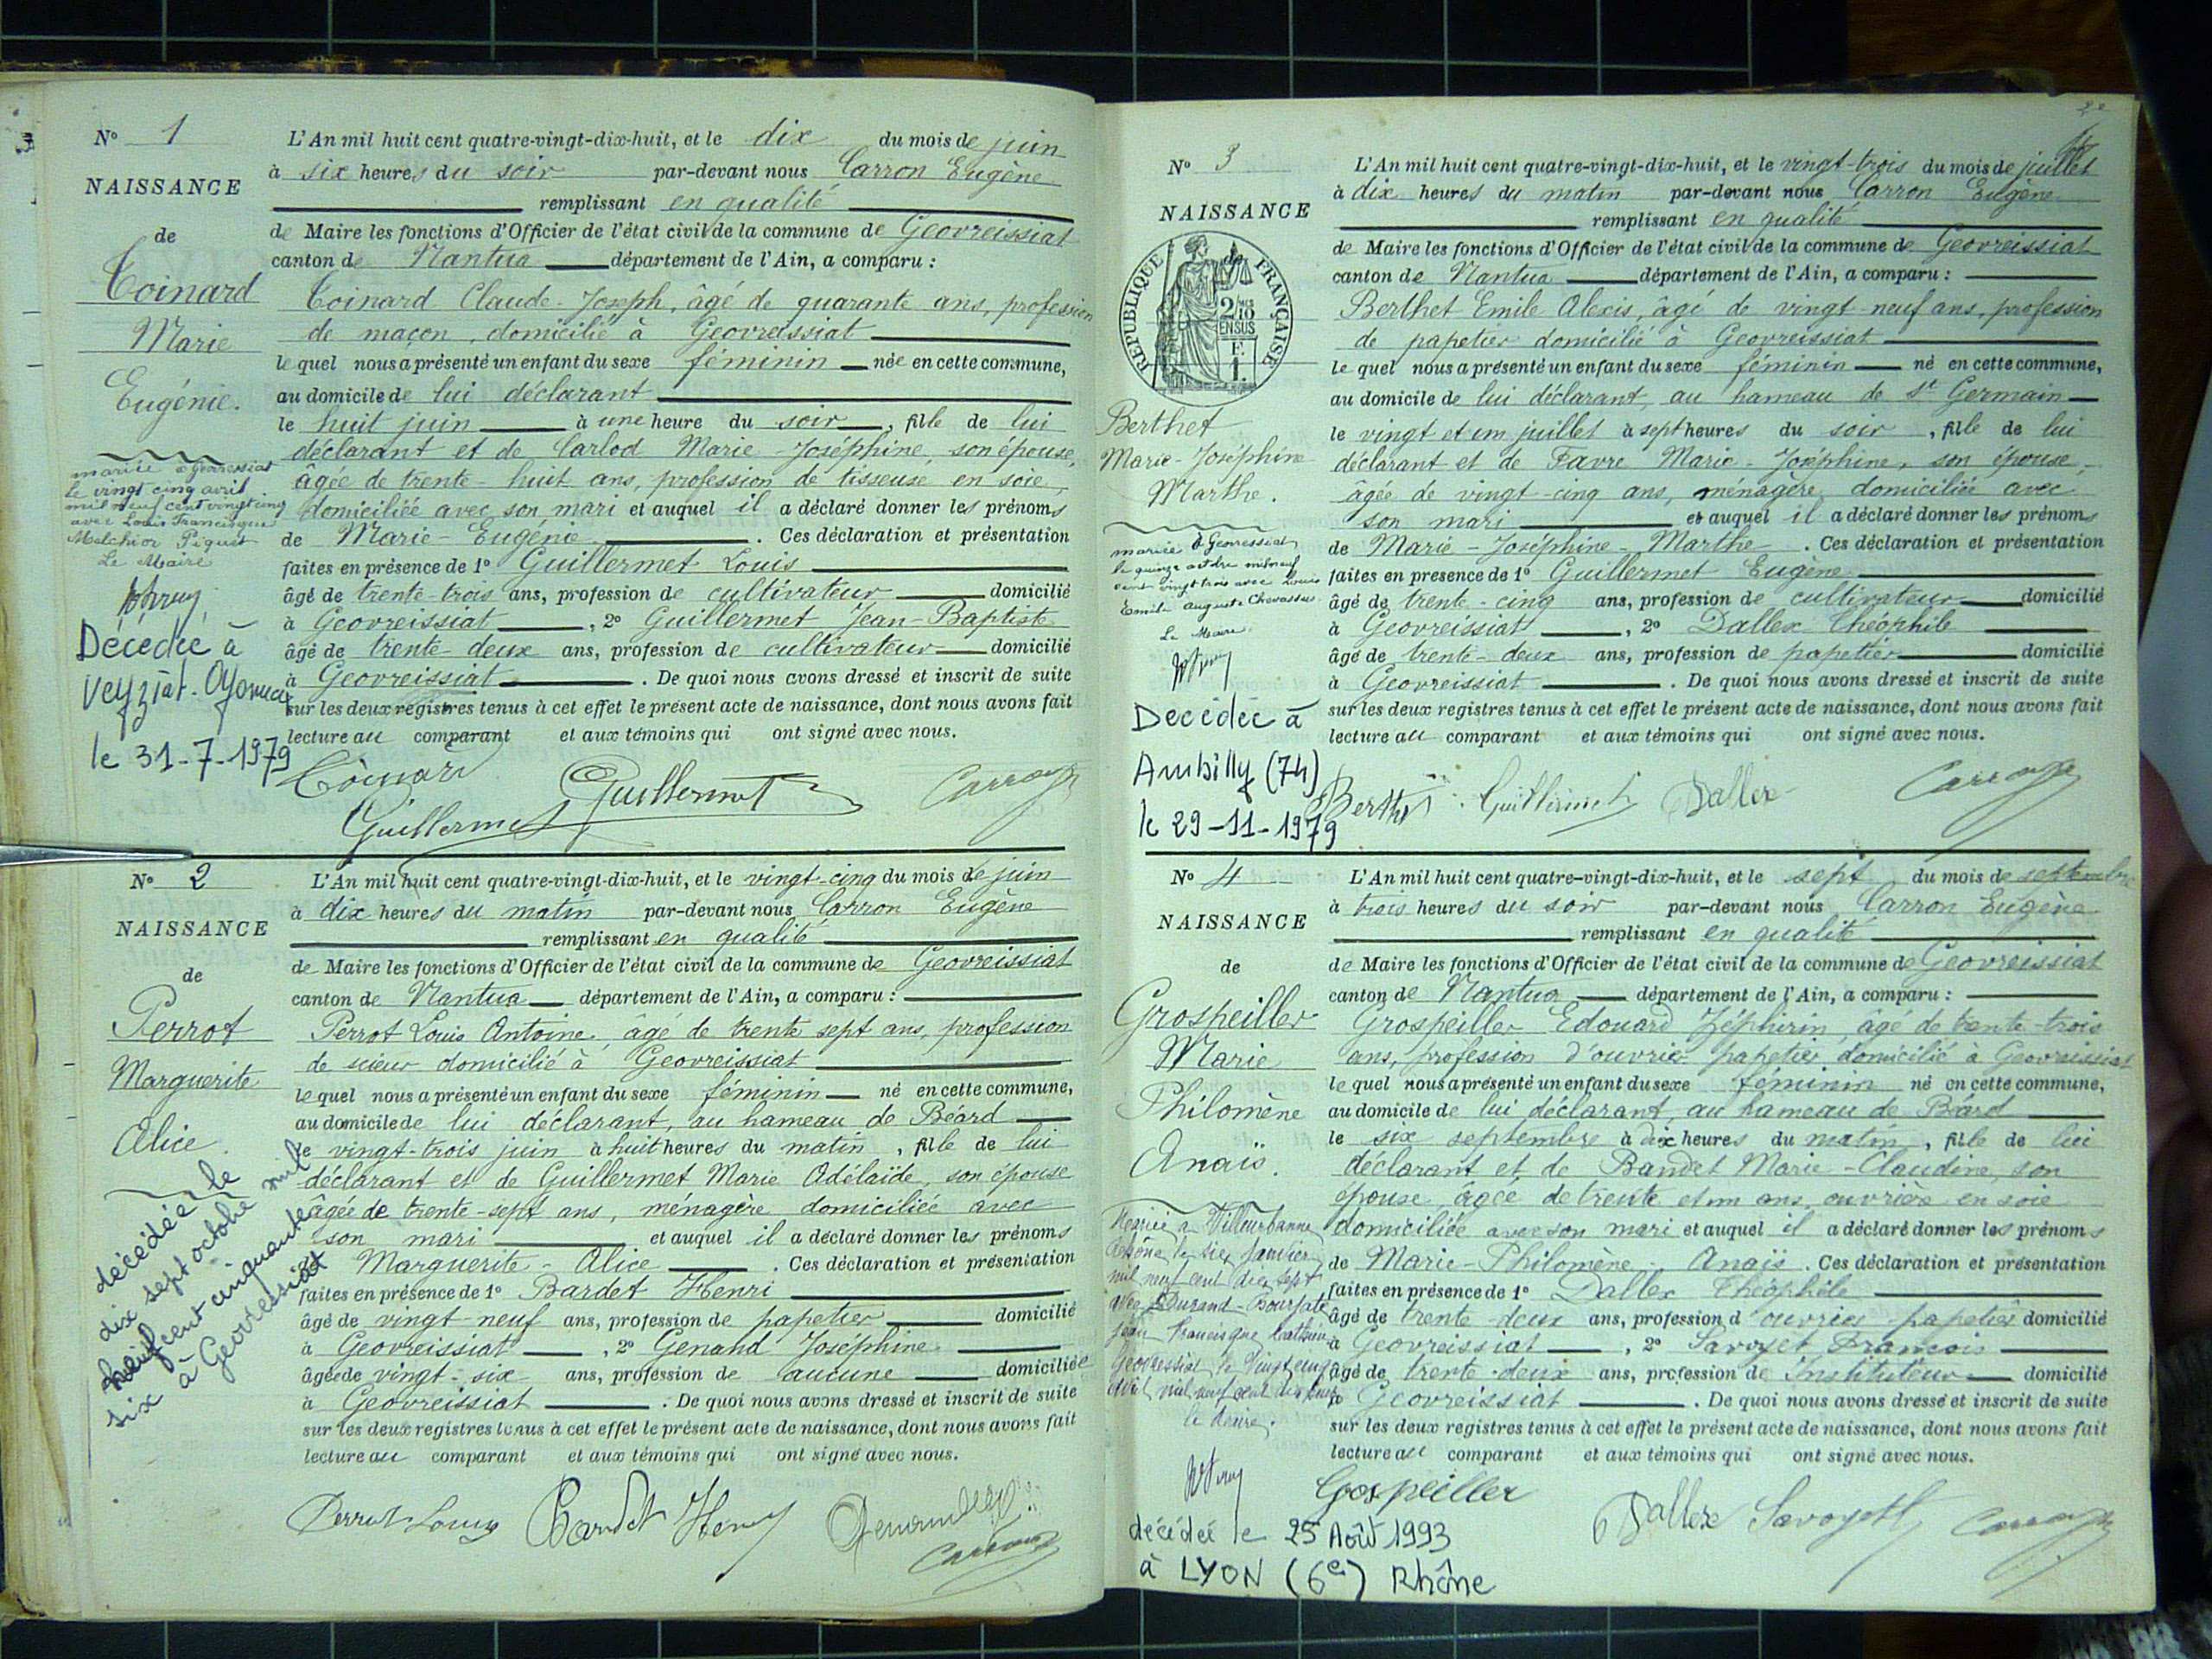 N° 1
NAISSANCE
de
Coinard
Marie
Eugénie.
mariée à Geovressiat
le vingt cinq avril
mil neuf cent vingt cinq
avec Louis Francisque
Melchior Piquet
Le Maire
Décédée à
Veyziat-Oyonnax
le 31-7-1979
L'An mil huit cent quatre-vingt-dix-huit, et le dix du mois de juin
à six heures du soir par-devant nous Carron Eugène
remplissant en qualité
de Maire les fonctions d'Officier de l'état civil de la commune de Geovreissiat
canton de Nantua département de l'Ain, a comparu :
Coinard Claude-Joseph, âgé de quarante ans, profession
de maçon, domicilié à Geovreissiat
le quel nous a présenté un enfant du sexe féminin née en cette commune,
au domicile de lui déclarant
le huit juin à une heure du soir, fille de lui
déclarant et de Carlod Marie-Joséphine, son épouse,
âgée de trente-huit ans, profession de tisseuse en soie,
domiciliée avec son mari et auquel il a déclaré donner les prénoms
de Marie-Eugénie. Ces déclaration et présentation
faites en présence de 1° Guillermet Louis
âgé de trente-trois ans, profession de cultivateur domicilié
à Geovreissiat, 2° Guillermet Jean-Baptiste
âgé de trente-deux ans, profession de cultivateur domicilié
à Geovreissiat. De quoi nous avons dressé et inscrit de suite
sur les deux registres tenus à cet effet le présent acte de naissance, dont nous avons fait
lecture au comparant et aux témoins qui ont signé avec nous.
Coinard Guillermet Carron
Guillermet
N° 2
NAISSANCE
de
Perrot
Marguerite
Alice.
décédée le
dix sept octobre mil
neuf cent cinquante
six à Geovressiat
L'An mil huit cent quatre-vingt-dix-huit, et le vingt-cinq du mois de juin
à dix heures du matin par-devant nous Carron Eugène
remplissant en qualité
de Maire les fonctions d'Officier de l'état civil de la commune de Geovreissiat
canton de Nantua département de l'Ain, a comparu :
Perrot Louis Antoine, âgé de trente sept ans, profession
de scieur domicilié à Geovreissiat
le quel nous a présenté un enfant du sexe féminin né en cette commune,
au domicile de lui déclarant, au hameau de Béard
le vingt-trois juin à huit heures du matin, fille de lui
déclarant et de Guillermet Marie Adélaïde, son épouse
âgée de trente-sept ans, ménagère domiciliée avec
son mari et auquel il a déclaré donner les prénoms
de Marguerite-Alice. Ces déclaration et présentation
faites en présence de 1° Bardet Henri
âgé de vingt-neuf ans, profession de papetier domicilié
à Geovreissiat, 2° Genand Joséphine
âgée de vingt-six ans, profession de aucune domiciliée
à Geovreissiat. De quoi nous avons dressé et inscrit de suite
sur les deux registres tenus à cet effet le présent acte de naissance, dont nous avons fait
lecture au comparant et aux témoins qui ont signé avec nous.
Perrot Louis Bardet Henry
Carron
N° 3
NAISSANCE
de
REPUBLIQUE FRANÇAISE
2/10 EN SUS
Berthet
Marie-Joséphine
Marthe.
mariée à Geovressiat
le quinze octobre mil neuf
cent vingt trois avec Louis
Emile Auguste Chevassus
Le Maire
Décédée à
Ambilly (74)
le 29-11-1979
L'An mil huit cent quatre-vingt-dix-huit, et le vingt-trois du mois de juillet
à dix heures du matin par-devant nous Carron Eugène
remplissant en qualité
de Maire les fonctions d'Officier de l'état civil de la commune de Geovreissiat
canton de Nantua département de l'Ain, a comparu :
Berthet Emile Alexis, âgé de vingt-neuf ans, profession
de papetier domicilié à Geovreissiat
le quel nous a présenté un enfant du sexe féminin né en cette commune,
au domicile de lui déclarant, au hameau de St Germain
le vingt et un juillet à sept heures du soir, fille de lui
déclarant et de Favre Marie-Joséphine, son épouse,
âgée de vingt-cinq ans, ménagère, domiciliée avec
son mari et auquel il a déclaré donner les prénoms
de Marie-Joséphine-Marthe. Ces déclaration et présentation
faites en présence de 1° Guillermet Eugène
âgé de trente-cinq ans, profession de cultivateur domicilié
à Geovreissiat, 2° Dallex Théophile
âgé de trente-deux ans, profession de papetier domicilié
à Geovreissiat. De quoi nous avons dressé et inscrit de suite
sur les deux registres tenus à cet effet le présent acte de naissance, dont nous avons fait
lecture au comparant et aux témoins qui ont signé avec nous.
Berthet Guillermet Dallex Carron
N° 4
NAISSANCE
de
Grospeiller
Marie
Philomène
Anaïs.
Mariée à Villeurbanne
Rhône le six janvier
mil neuf cent dix sept
avec Durand-Bourjate
Jean Francisque
Geovressiat le vingt cinq
avril mil neuf cent
le Maire.
décédée le 25 Août 1993
à LYON (6e) Rhône
L'An mil huit cent quatre-vingt-dix-huit, et le sept du mois de septembre
à trois heures du soir par-devant nous Carron Eugène
remplissant en qualité
de Maire les fonctions d'Officier de l'état civil de la commune de Geovreissiat
canton de Nantua département de l'Ain, a comparu :
Grospeiller Edouard Zéphirin âgé de trente-trois
ans, profession d'ouvrier papetier, domicilié à Geovreissiat
le quel nous a présenté un enfant du sexe féminin né en cette commune,
au domicile de lui déclarant, au hameau de Béard
le six septembre à dix heures du matin, fille de lui
déclarant et de Bandet Marie-Claudine, son
épouse âgée de trente et un ans, ouvrière en soie
domiciliée avec son mari et auquel il a déclaré donner les prénoms
de Marie-Philomène Anaïs. Ces déclaration et présentation
faites en présence de 1° Dallex Théophile
âgé de trente-deux ans, profession d'ouvrier papetier domicilié
à Geovreissiat, 2° Savoyet François
âgé de trente-deux ans, profession de Instituteur domicilié
à Geovreissiat. De quoi nous avons dressé et inscrit de suite
sur les deux registres tenus à cet effet le présent acte de naissance, dont nous avons fait
lecture au comparant et aux témoins qui ont signé avec nous.
Grospeiller Dallex Savoyet Carron